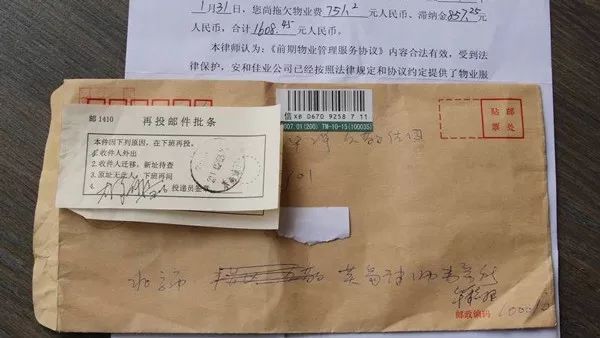 1月31日，您尚拖欠物业费751.2元人民币、滞纳金857.25元
人民币，合计1608.45元人民币。
本律师认为：《前期物业管理服务协议》内容合法有效，受到法
律保护，安和佳业公司已经按照法律规定和协议约定提供了物业服
邮1410
再投邮件批条
本件因下列原因，在下班再投。
1.收件人外出
2.收件人迁移，新址待查
3.原址无此人，下班再问
4.
投递员签章
信 XB 0670 9258 7 11
2007.01(200) TM-10-15(100035)
贴 邮
票 处
01
北京市
英岛律师事务所
邮政编码